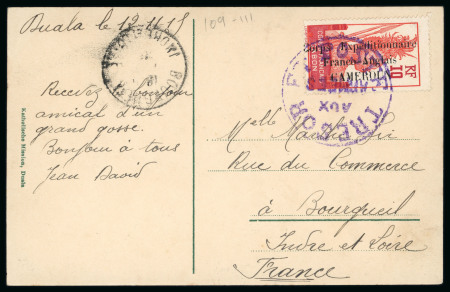 Duala le 12.11.15
109-111
Recevez bonjour
amical d'un
grand gosse.
Bonjour à tous
Jean David
Katholische Mission, Duala
Corps Expéditionnaire
Franco-Anglais
CAMEROUN
RF
10
TRESOR
AUX
Melle
Rue du Commerce
à Bourgueil
Indre et Loire
France